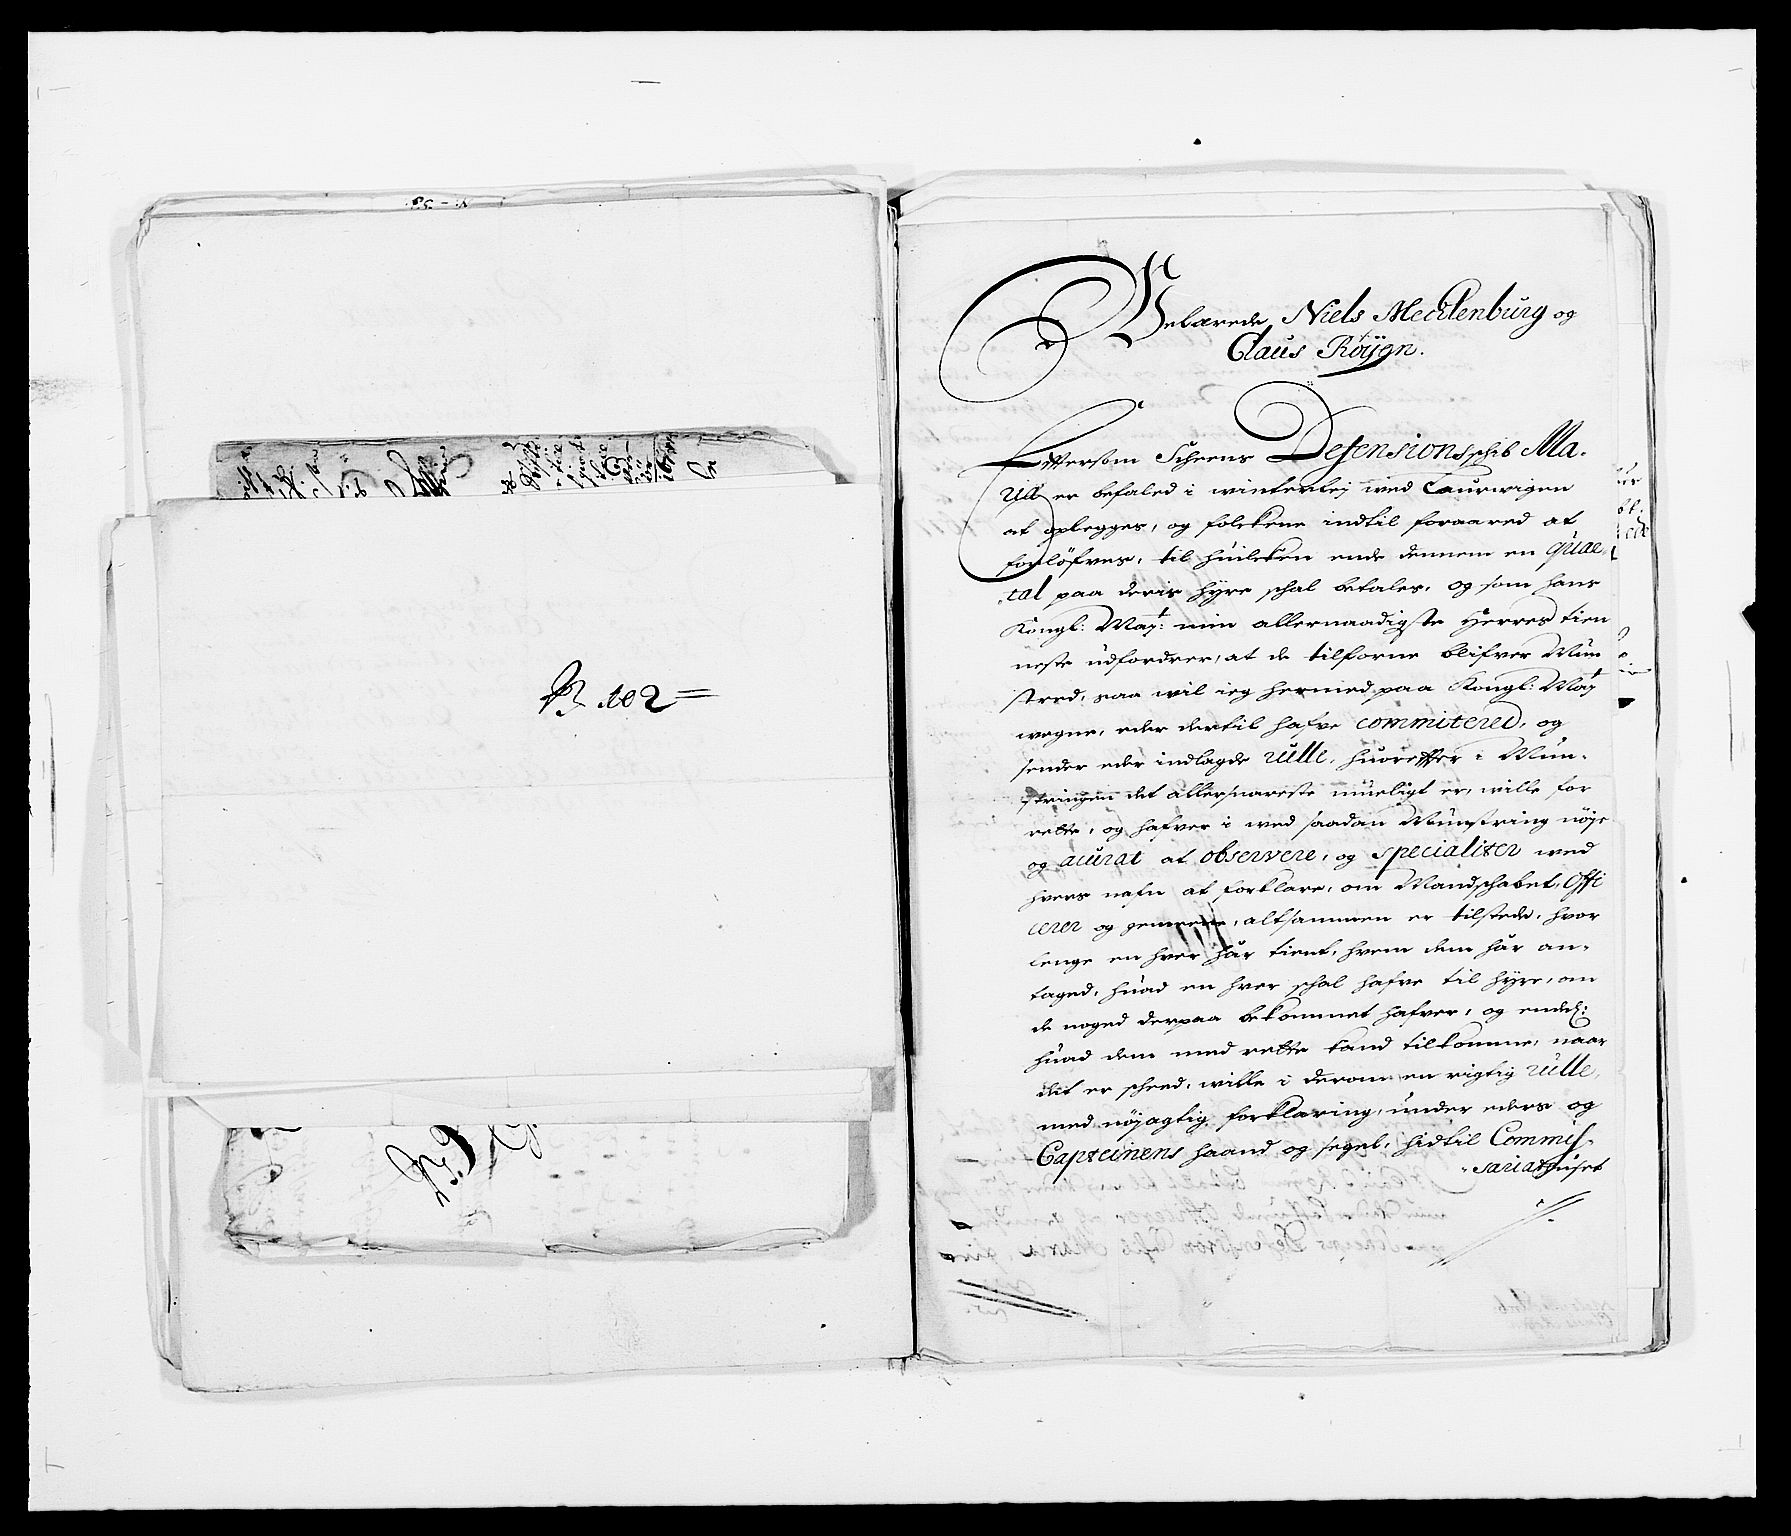 N 102 =
Velbærede Niels Mecklenburg og
Claus Röÿen.
Efftersom Scheens Defensionsschib Ma-
ria er befaled i winterlej wed Laurwigen
at oplegges, og folckene indtil foraared at
forlöfves, til huilcken ende dennem en quar-
tal paa deris hyre schal betales, og som hans
Kongl: Maÿt: min allernaadigste Herres tien
neste udfordrer, at de tilforne blifver Mün
stred, saa wil ieg hermed paa Kongl: Maÿt
wegne, eder dertil hafve committered, og
sender eder indlagde rülle, huorefter i Mün-
stringen det allersnareste mueligt er, wille for
rette, og hafver i wed saadan Münstring nöje
og acurat at observere, og specialiter wed
hvers nafn at forklare, om Mandschabet, Offi
cerer og gemeene, altsammen er tilstede, hvor
lenge en hver här tient, hvem dem här an-
taged, huad en hver schal hafve til hyre, om
de noged derpaa bekommet hafver, og endel:
huad dem med rette kand tilkomme, naar
det er scheed, wille i derom en rigtig rülle,
med nöjagtig forklaring, under eders og
Capteinens haand og segel, hidtil Commis-
sariathuset